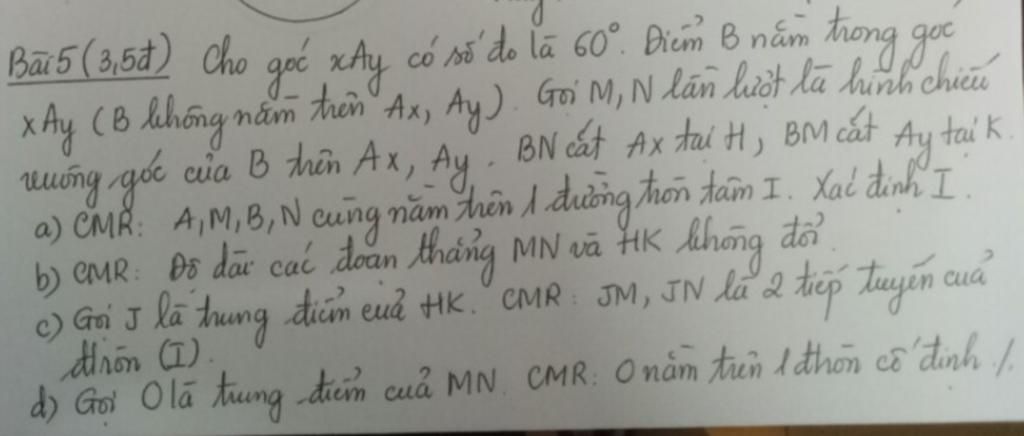 Bài 5 (3,5đ) Cho góc xAy có số đo là 60°. Điểm B nằm trong góc
xAy (B không nằm trên Ax, Ay). Gọi M, N lần lượt là hình chiếu
vuông góc của B trên Ax, Ay. BN cắt Ax tại H, BM cắt Ay tại K.
a) CMR: A, M, B, N cùng nằm trên 1 đường tròn tâm I. Xác định I.
b) CMR: Độ dài các đoạn thẳng MN và HK không đổi.
c) Gọi J là trung điểm của HK. CMR: JM, JN là 2 tiếp tuyến của
đtròn (I).
d) Gọi O là trung điểm của MN. CMR: O nằm trên 1 đtròn cố định /.